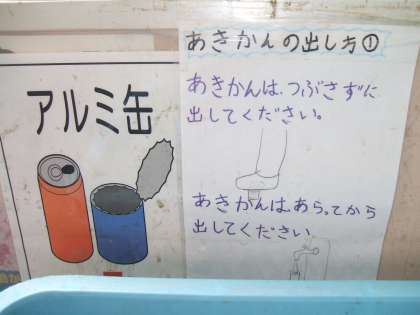 アルミ缶
あきかんの出し方①
あきかんは、つぶさずに
出してください。
あきかんは、あらってから
出してください